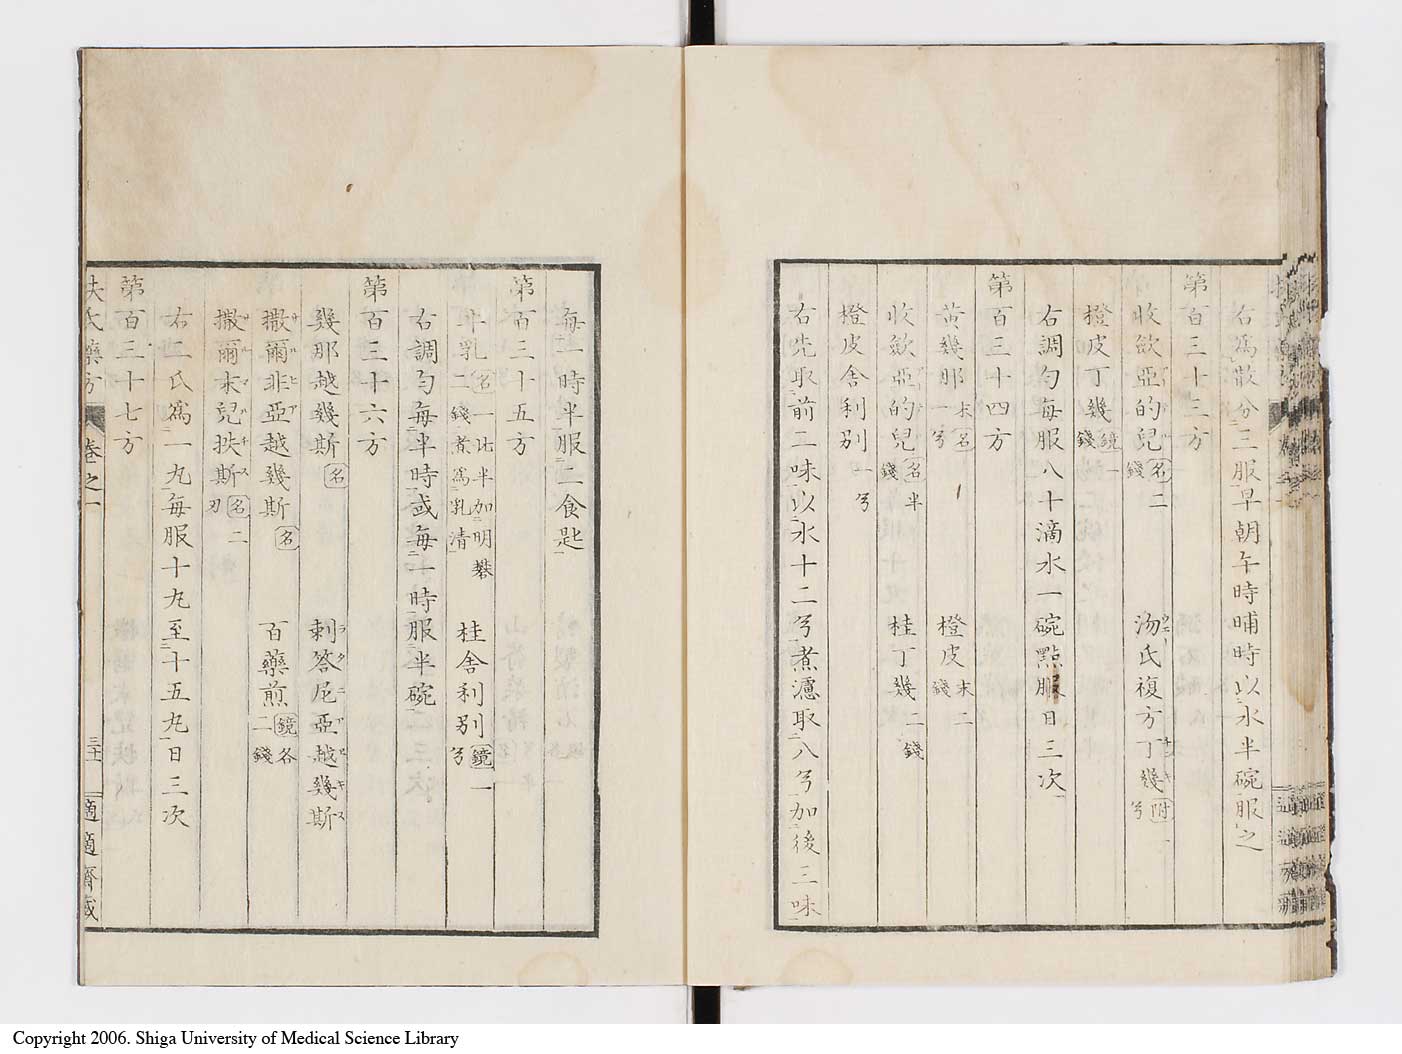 右爲散分三服早朝午時晡時以水半碗服之
第百三十三方
收歛亞的兒 名 二錢 湯氏複方丁幾 附 一兮
橙皮丁幾 鏡 一錢
右調勻每服八十滴水一碗點服日三次
第百三十四方
黄幾那 末 名 一兮 橙皮 末 二錢
收歛亞的兒 名 半錢 桂丁幾 二錢
橙皮舍利別 一兮
右先取前二味以水十二兮煮濾取八兮加後三味
每一時半服二食匙
第百三十五方
牛乳 名 一比半加明礬二錢煮爲乳清 桂舍利別 鏡 一兮
右調勻每半時或每一時服半碗
第百三十六方
幾那越幾斯 名 剌答尼亞越幾斯
撒爾非亞越幾斯 名 百藥煎 鏡 各二錢
撒爾末兒扶斯 名 二刃
右二氏爲一丸每服十丸至十五丸日三次
第百三十七方
扶氏藥方 卷之一 三十 適適齋藏
Copyright 2006. Shiga University of Medical Science Library